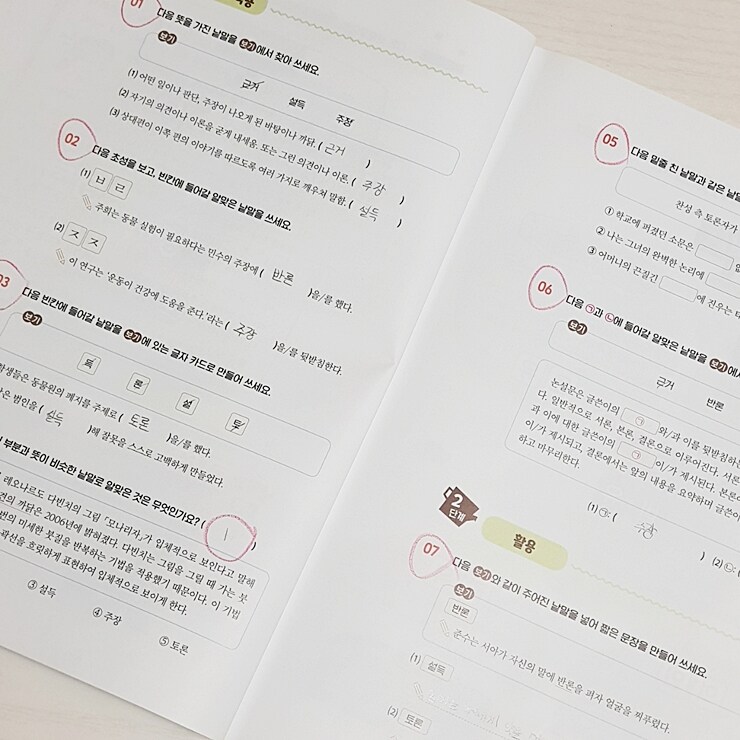 01 다음 뜻을 가진 낱말을 보기에서 찾아 쓰세요.
보기
근거 설득 주장
(1) 어떤 일이나 판단, 주장이 나오게 된 바탕이나 까닭. ( 근거 )
(2) 자기의 의견이나 이론을 굳게 내세움. 또는 그런 의견이나 이론. ( 주장 )
(3) 상대편이 이쪽 편의 이야기를 따르도록 여러 가지로 깨우쳐 말함. ( 설득 )
02 다음 초성을 보고, 빈칸에 들어갈 알맞은 낱말을 쓰세요.
(1) ㅂ ㄹ
주희는 동물 실험이 필요하다는 민수의 주장에 ( 반론 )을/를 했다.
(2) ㅈ ㅈ
이 연구는 '운동이 건강에 도움을 준다.'라는 ( 주장 )을/를 뒷받침한다.
03 다음 빈칸에 들어갈 낱말을 보기에 있는 글자 카드로 만들어 쓰세요.
보기
득 론 설 토
학생들은 동물원의 폐지를 주제로 ( 토론 )을/를 했다.
은 범인을 ( 설득 )해 잘못을 스스로 고백하게 만들었다.
부분과 뜻이 비슷한 낱말로 알맞은 것은 무엇인가요? ( 1 )
레오나르도 다빈치의 그림 「모나리자」가 입체적으로 보인다고 말해
견의 까닭은 2006년에 밝혀졌다. 다빈치는 그림을 그릴 때 가는 붓
번의 미세한 붓질을 반복하는 기법을 적용했기 때문이다. 이 기법
곽선을 흐릿하게 표현하여 입체적으로 보이게 한다.
③ 설득 ④ 주장 ⑤ 토론
05 다음 밑줄 친 낱말과 같은 낱말
찬성 측 토론자가
① 학교에 퍼졌던 소문은
② 나는 그녀의 완벽한 논리에
③ 어머니의 끈질긴 에 진우는
06 다음 ㉠과 ㉡에 들어갈 알맞은 낱말을 보기에서
보기
근거 반론
논설문은 글쓴이의 ㉠ 와/과 이를 뒷받침하는
다. 일반적으로 서론, 본론, 결론으로 이루어진다. 서론
과 이에 대한 글쓴이의 ㉠ 이/가 제시된다. 본론
이/가 제시되고, 결론에서는 앞의 내용을 요약하며 글쓴이
하고 마무리한다.
(1) ㉠: ( 주장 ) (2) ㉡:
2단계 활용
07 다음 보기와 같이 주어진 낱말을 넣어 짧은 문장을 만들어 쓰세요.
보기
반론
준수는 서아가 자신의 말에 반론을 펴자 얼굴을 찌푸렸다.
(1) 설득
(2) 토론